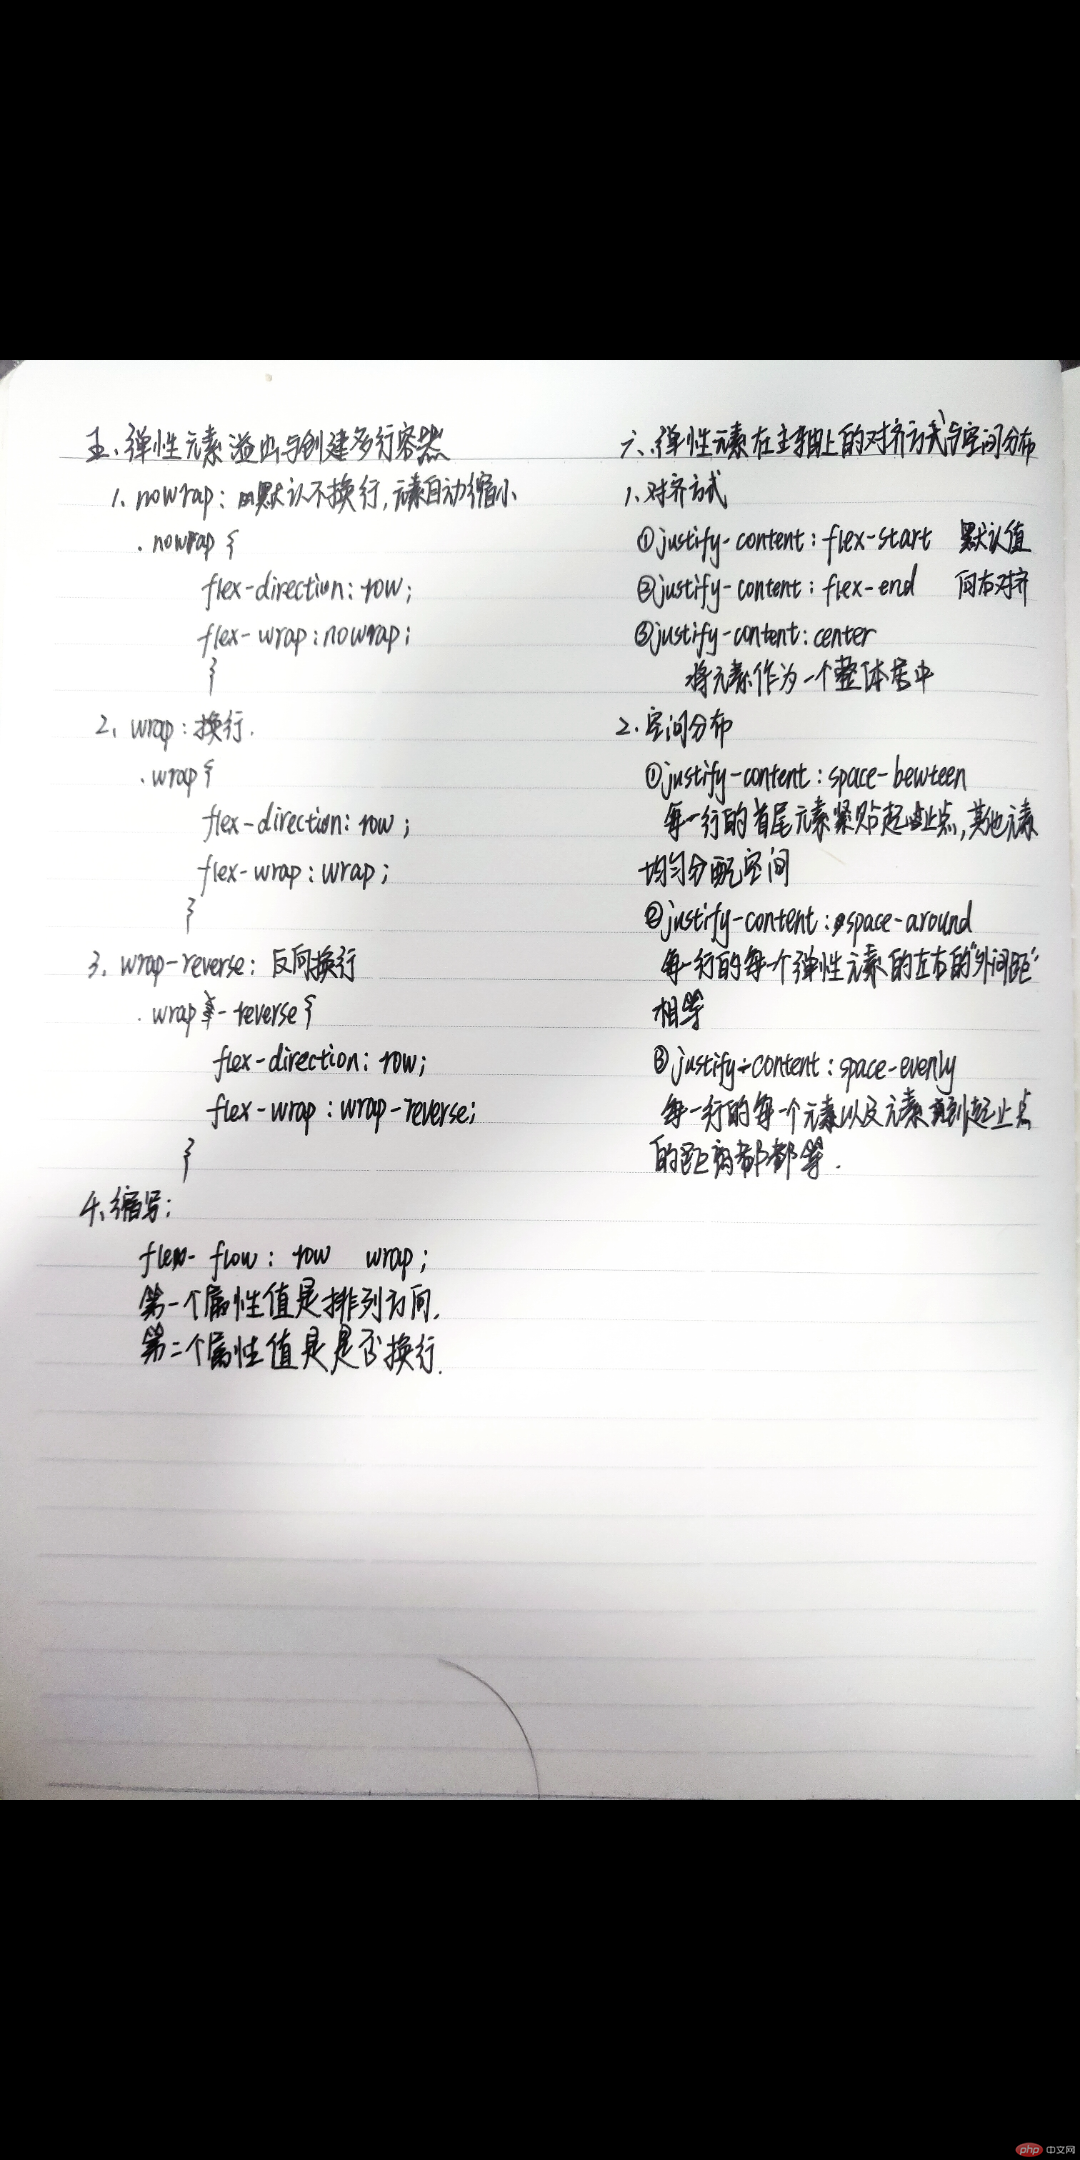 五、弹性元素溢出与创建多行容器
1、nowrap：默认不换行,元素自动缩小
.nowrap {
flex-direction: row;
flex-wrap: nowrap;
}
2、wrap：换行.
.wrap {
flex-direction: row;
flex-wrap: wrap;
}
3、wrap-reverse：反向换行
.wrap-reverse {
flex-direction: row;
flex-wrap: wrap-reverse;
}
4、缩写:
flex-flow: row wrap;
第一个属性值是排列方向.
第二个属性值是是否换行.
六、弹性元素在主轴上的对齐方式与空间分布
1、对齐方式
①justify-content: flex-start 默认值
②justify-content: flex-end 向右对齐
③justify-content: center
将元素作为一个整体居中
2.空间分布
①justify-content: space-bewteen
每一行的首尾元素紧贴起止点,其他元素
均匀分配空间
②justify-content: space-around
每一行的每个弹性元素的左右的"外间距"
相等
③justify-content: space-evenly
每一行的每一个元素以及元素到起止点
的距离都等.
php 中文网